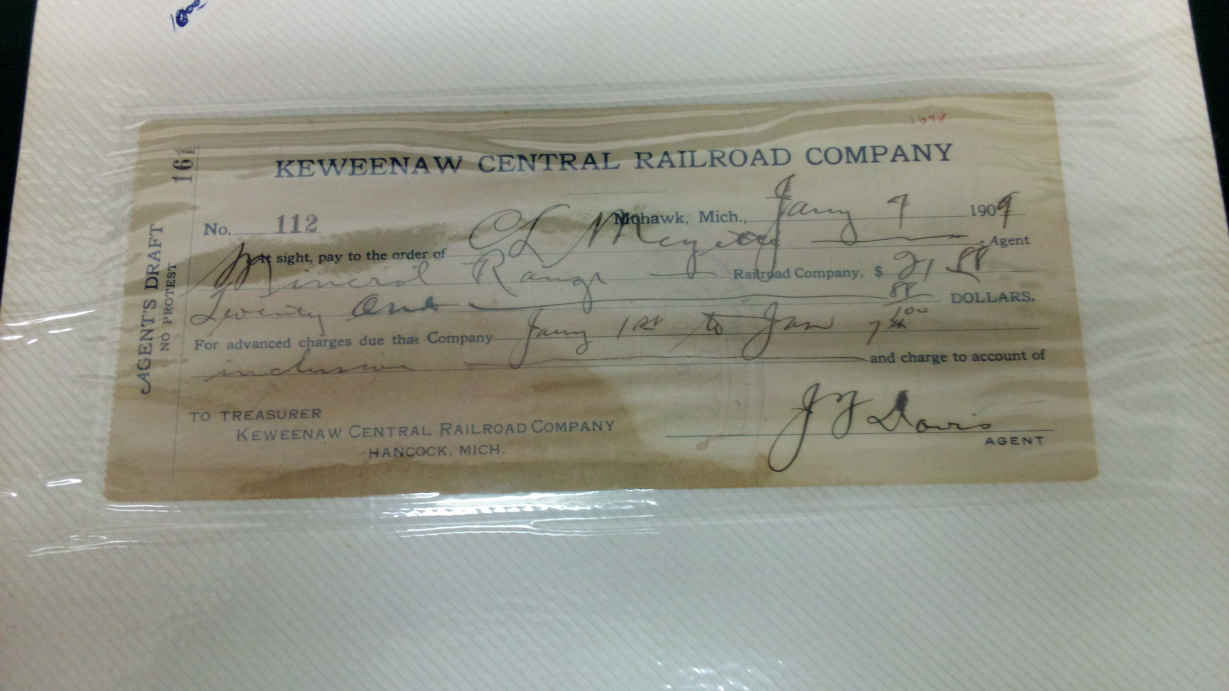 1000
1648
161
KEWEENAW CENTRAL RAILROAD COMPANY
AGENT'S DRAFT
NO PROTEST
No. 112
Mohawk, Mich., Jany 7 1909
At sight, pay to the order of C L Agent
Mineral Range Railroad Company. $ 21 88
Twenty One 88/100 DOLLARS.
For advanced charges due that Company Jany 1st to Jan 7th
inclusive and charge to account of
TO TREASURER
KEWEENAW CENTRAL RAILROAD COMPANY
HANCOCK, MICH.
J F Davis
AGENT